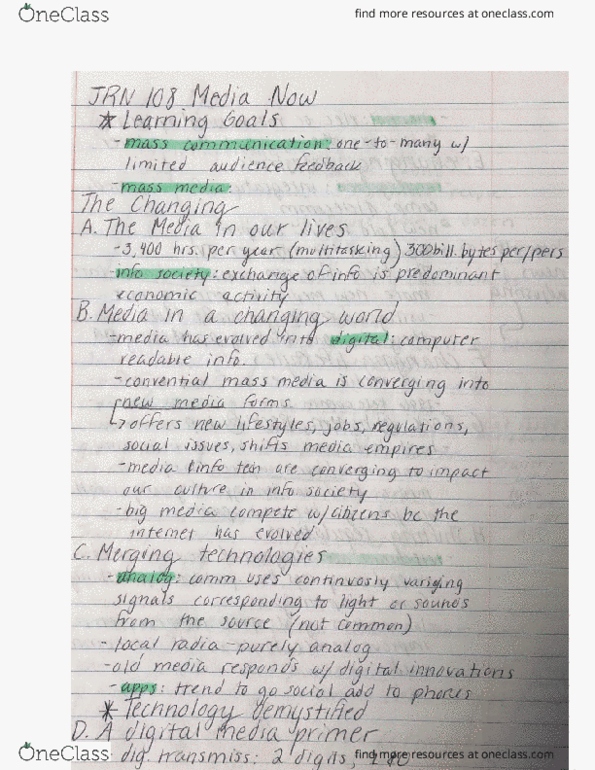 OneClass
find more resources at oneclass.com
JRN 108 Media Now
* Learning Goals
-mass communication: one-to-many w/
limited audience feedback
-mass media:
The Changing
A. The Media in our lives
-3,400 hrs. per year (multitasking) 300bill. bytes per/pers
info society: exchange of info is predominant
economic activity
B. Media in a changing world
-media has evolved into digital: computer
readable info.
-convential mass media is converging into
new media forms
↳ offers new lifestyles, jobs, regulations,
social issues, shifts media empires
-media & info tech are converging to impact
our culture in info society
-big media compete w/citizens bc the
internet has evolved
C. Merging technologies
-analog: comm uses continuosly varying
signals corresponding to light or sounds
from the source (not common)
-local radia-purely analog
-old media responds w/ digital innovations
-apps: trend to go social add to phones
* Technology demystified
D. A digital media primer
-dig. transmiss: 2 digits,
OneClass
find more resources at oneclass.com